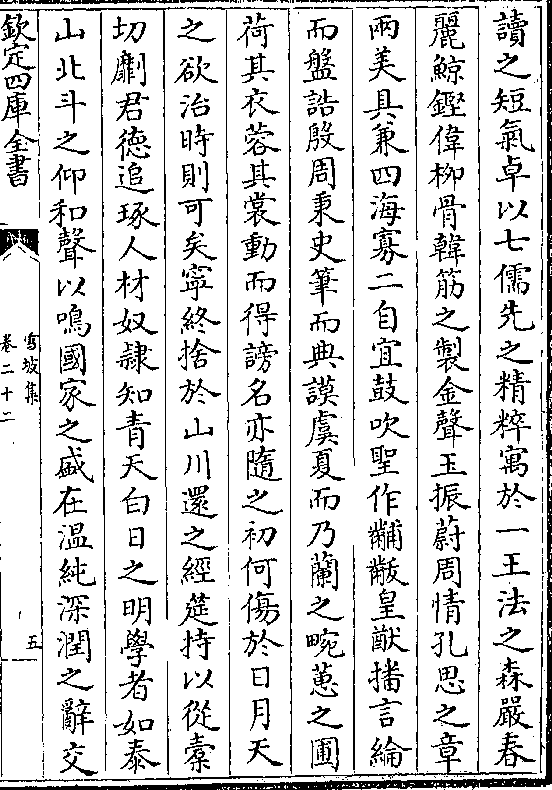 讀之短氣卓以七儒先之精粹寓於一王法之森嚴春
麗鯨鏗偉柳骨韓筋之製金聲玉振蔚周情孔思之章
兩美具兼四海寡二自宜鼓吹聖作黼黻皇猷播言綸
而盤誥殷周秉史筆而典謨虞夏而乃蘭之畹蕙之圃
荷其衣蓉其裳動而得謗名亦隨之初何傷於日月天
之欲治時則可矣寧終捨於山川還之經筵持以從槖
切劘君德追琢人材奴隷知青天白日之明學者如泰
山北斗之仰和聲以鳴國家之盛在溫純深潤之辭交
欽定四庫全書
雪坡集
卷二十二
五